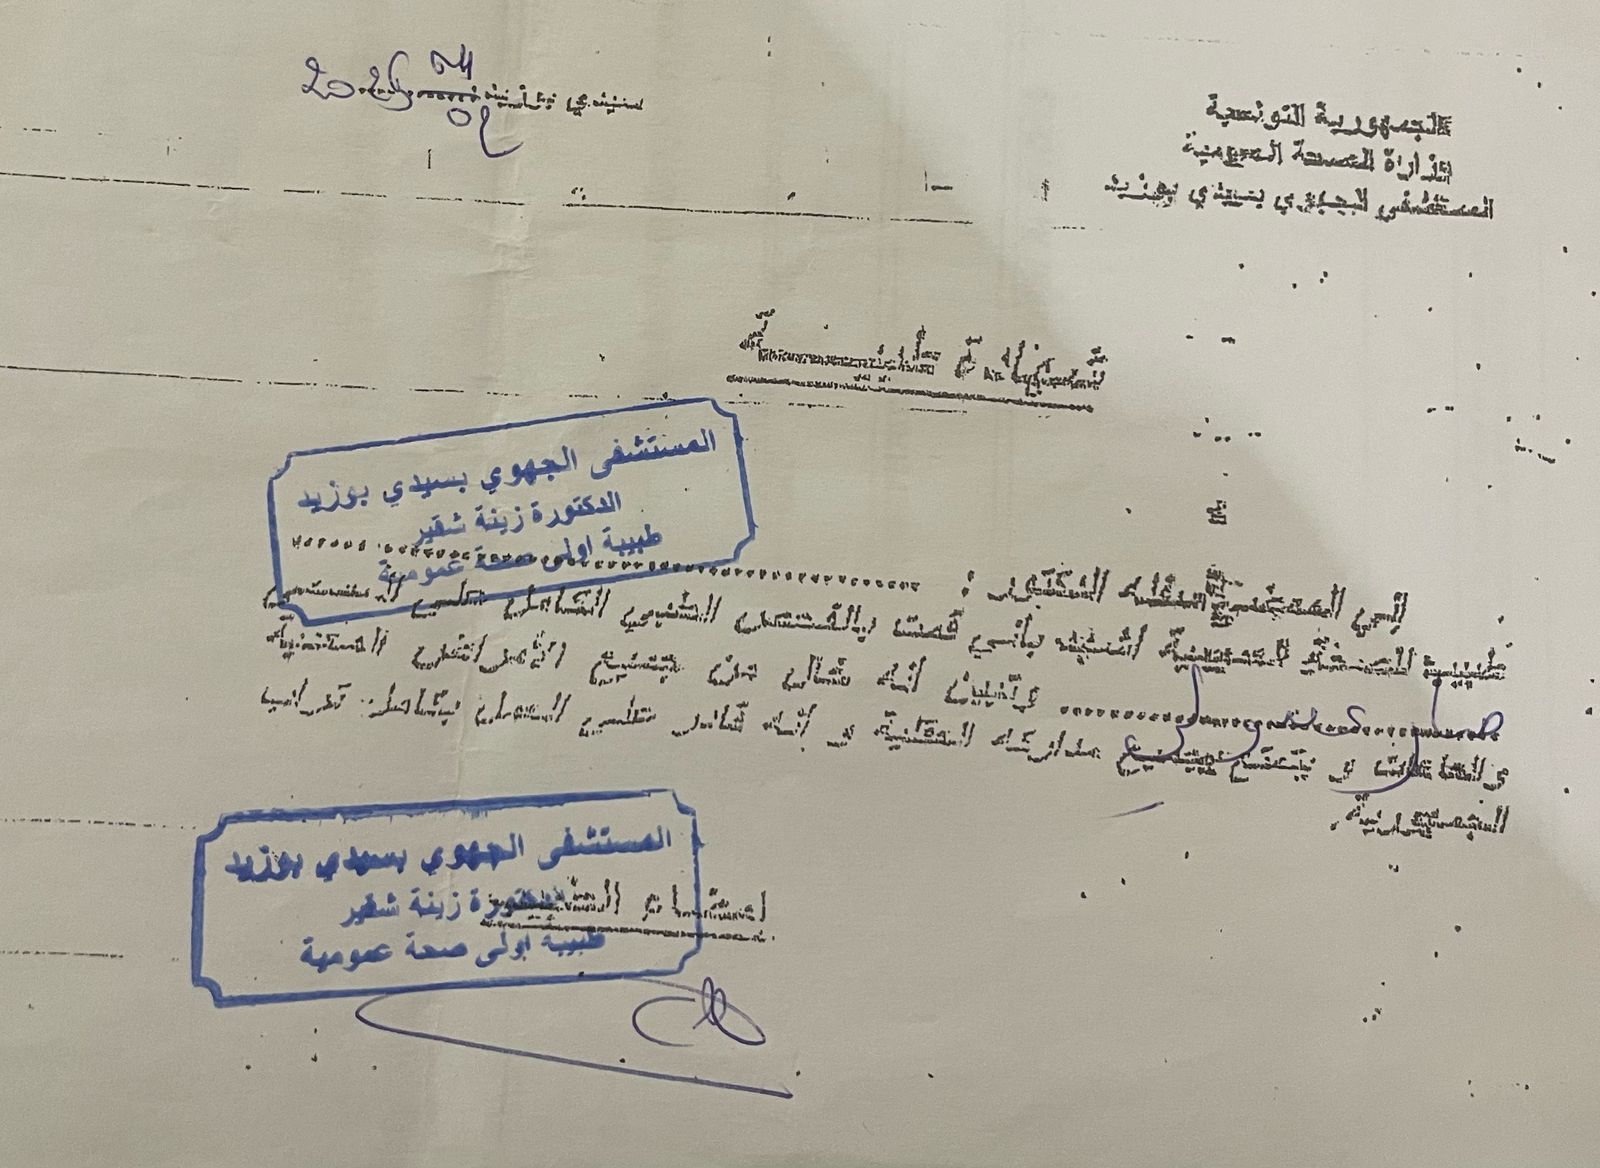 الجمهورية التونسية
وزارة الصحة العمومية
المستشفى الجهوي بسيدي بوزيد
سيدي بوزيد في 2025
شهادة طبية
المستشفى الجهوي بسيدي بوزيد
الدكتورة زينة شقير
طبيبة اولى صحة عمومية
إني الممضي أسفله الدكتور : ..............................
طبيبة الصحة العمومية أشهد بأنني قمت بالفحص الطبي الكامل على
وتبين أنه خال من جميع الأمراض
و يتمتع بجميع مداركه العقلية و أنه قادر على العمل بكامل تراب
الجمهورية.
المستشفى الجهوي بسيدي بوزيد
الدكتورة زينة شقير
طبيبة اولى صحة عمومية
امضاء الطبيب